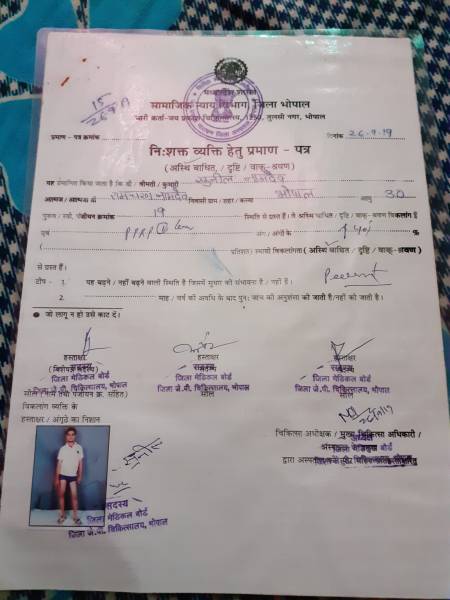 सामाजिक न्याय विभाग जिला भोपाल
जारी कर्ता-जय प्रकाश चिकित्सालय, 1250, तुलसी नगर, भोपाल
प्रमाण - पत्र क्रमांक
दिनांक 26.9.19
निःशक्त व्यक्ति हेतु प्रमाण - पत्र
(अस्थि बाधित, / दृष्टि / वाक्-श्रवण)
यह प्रमाणित किया जाता है कि श्री / श्रीमती / कुमारी सुनील नामदेव
आत्मज / आत्मजा श्री रामनारायण नामदेव निवासी ग्राम / शहर / कस्बा भोपाल आयु 30
पुरूष / स्त्री, पंजीयन क्रमांक 19 स्थिति से ग्रस्त हैं। ये अस्थि बाधित / दृष्टि / वाक् - श्रवण विकलांग हैं
एवं PPRP @ अंग / अंगों के %
प्रतिशत/ स्थायी विकलांगता (अस्थि बाधित / दृष्टि / वाक्-श्रवण)
से ग्रस्त हैं।
टीप - 1. यह बढ़ने / नहीं बढ़ने वाली स्थिति है जिसमें सुधार की संभावना है / नहीं है।
2. माह / वर्ष की अवधि के बाद पुनः जांच की अनुशंसा की जाती है/नहीं की जाती है।
● जो लागू न हो उसे काट दें।
हस्ताक्षर हस्ताक्षर हस्ताक्षर
सदस्य सदस्य सदस्य
जिला मेडिकल बोर्ड जिला मेडिकल बोर्ड जिला मेडिकल बोर्ड
जिला जे.पी. चिकित्सालय, भोपाल जिला जे.पी. चिकित्सालय, भोपाल जिला जे.पी. चिकित्सालय, भोपाल
सील (नाम तथा पंजीयन क्र. सहित) सील सील
विकलांग व्यक्ति के
हस्ताक्षर / अंगूठे का निशान
चिकित्सा अधीक्षक / मुख्य चिकित्सा अधिकारी /
सदस्य
जिला मेडिकल बोर्ड
जिला जे.पी. चिकित्सालय, भोपाल